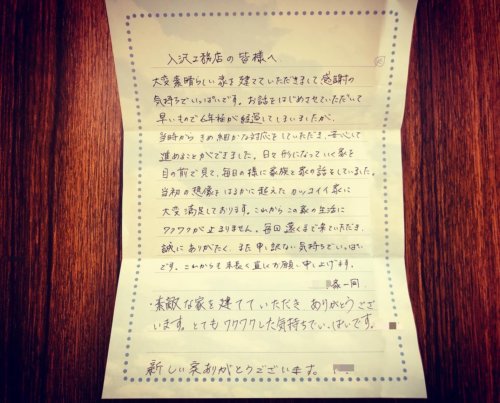 入沢工務店の皆様へ
大変素晴らしい家を建てていただきまして感謝の
気持ちでいっぱいです。お話をはじめさせていただいて
早いもので6年程が経過してしまいましたが、
当時から きめ細かな対応をしていただき、安心して
進めることができました。日々形になっていく家を
目の前で見て、毎日の様に家族と家の話をしていました。
当初の想像をはるかに超えた カッコイイ家に
大変満足しております。これから この家の生活に
ワクワクが止まりません。毎回遠くまで来ていただき、
誠にありがたく、また申し訳ない気持ちでいっぱい
です。これからも末長く宜しくお願い申し上げます。
家一同
・素敵な家を建てていただき ありがとうござ
います。とてもワクワクした気持ちでいっぱいです。
新しい家ありがとうございます。